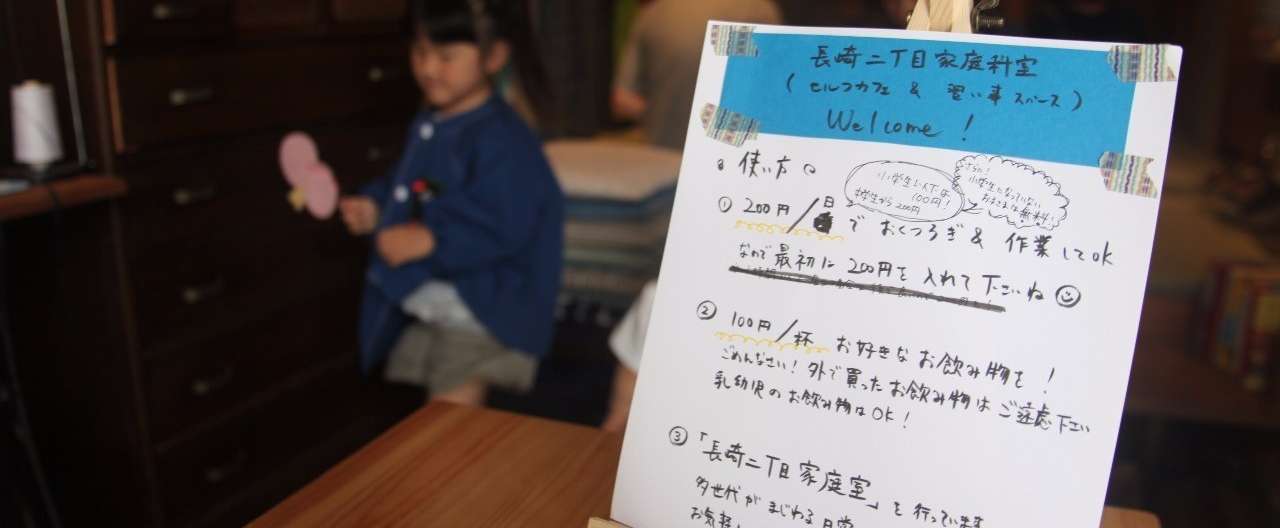 長崎二丁目家庭科室
(セルフカフェ & 習い事スペース)
Welcome!
使い方
小学生以下は
100円!
中学生から200円
さらに!
小学生になっていない
お子さまは無料!
① 200円/日 で おくつろぎ & 作業してOK
なので最初に200円を入れて下さいね
② 100円/杯 お好きなお飲み物を!
ごめんなさい!外で買ったお飲み物はご遠慮下さい
乳幼児のお飲み物はOK!
③ 「長崎二丁目家庭室」を行っています
多世代がまじわる日常
お気軽